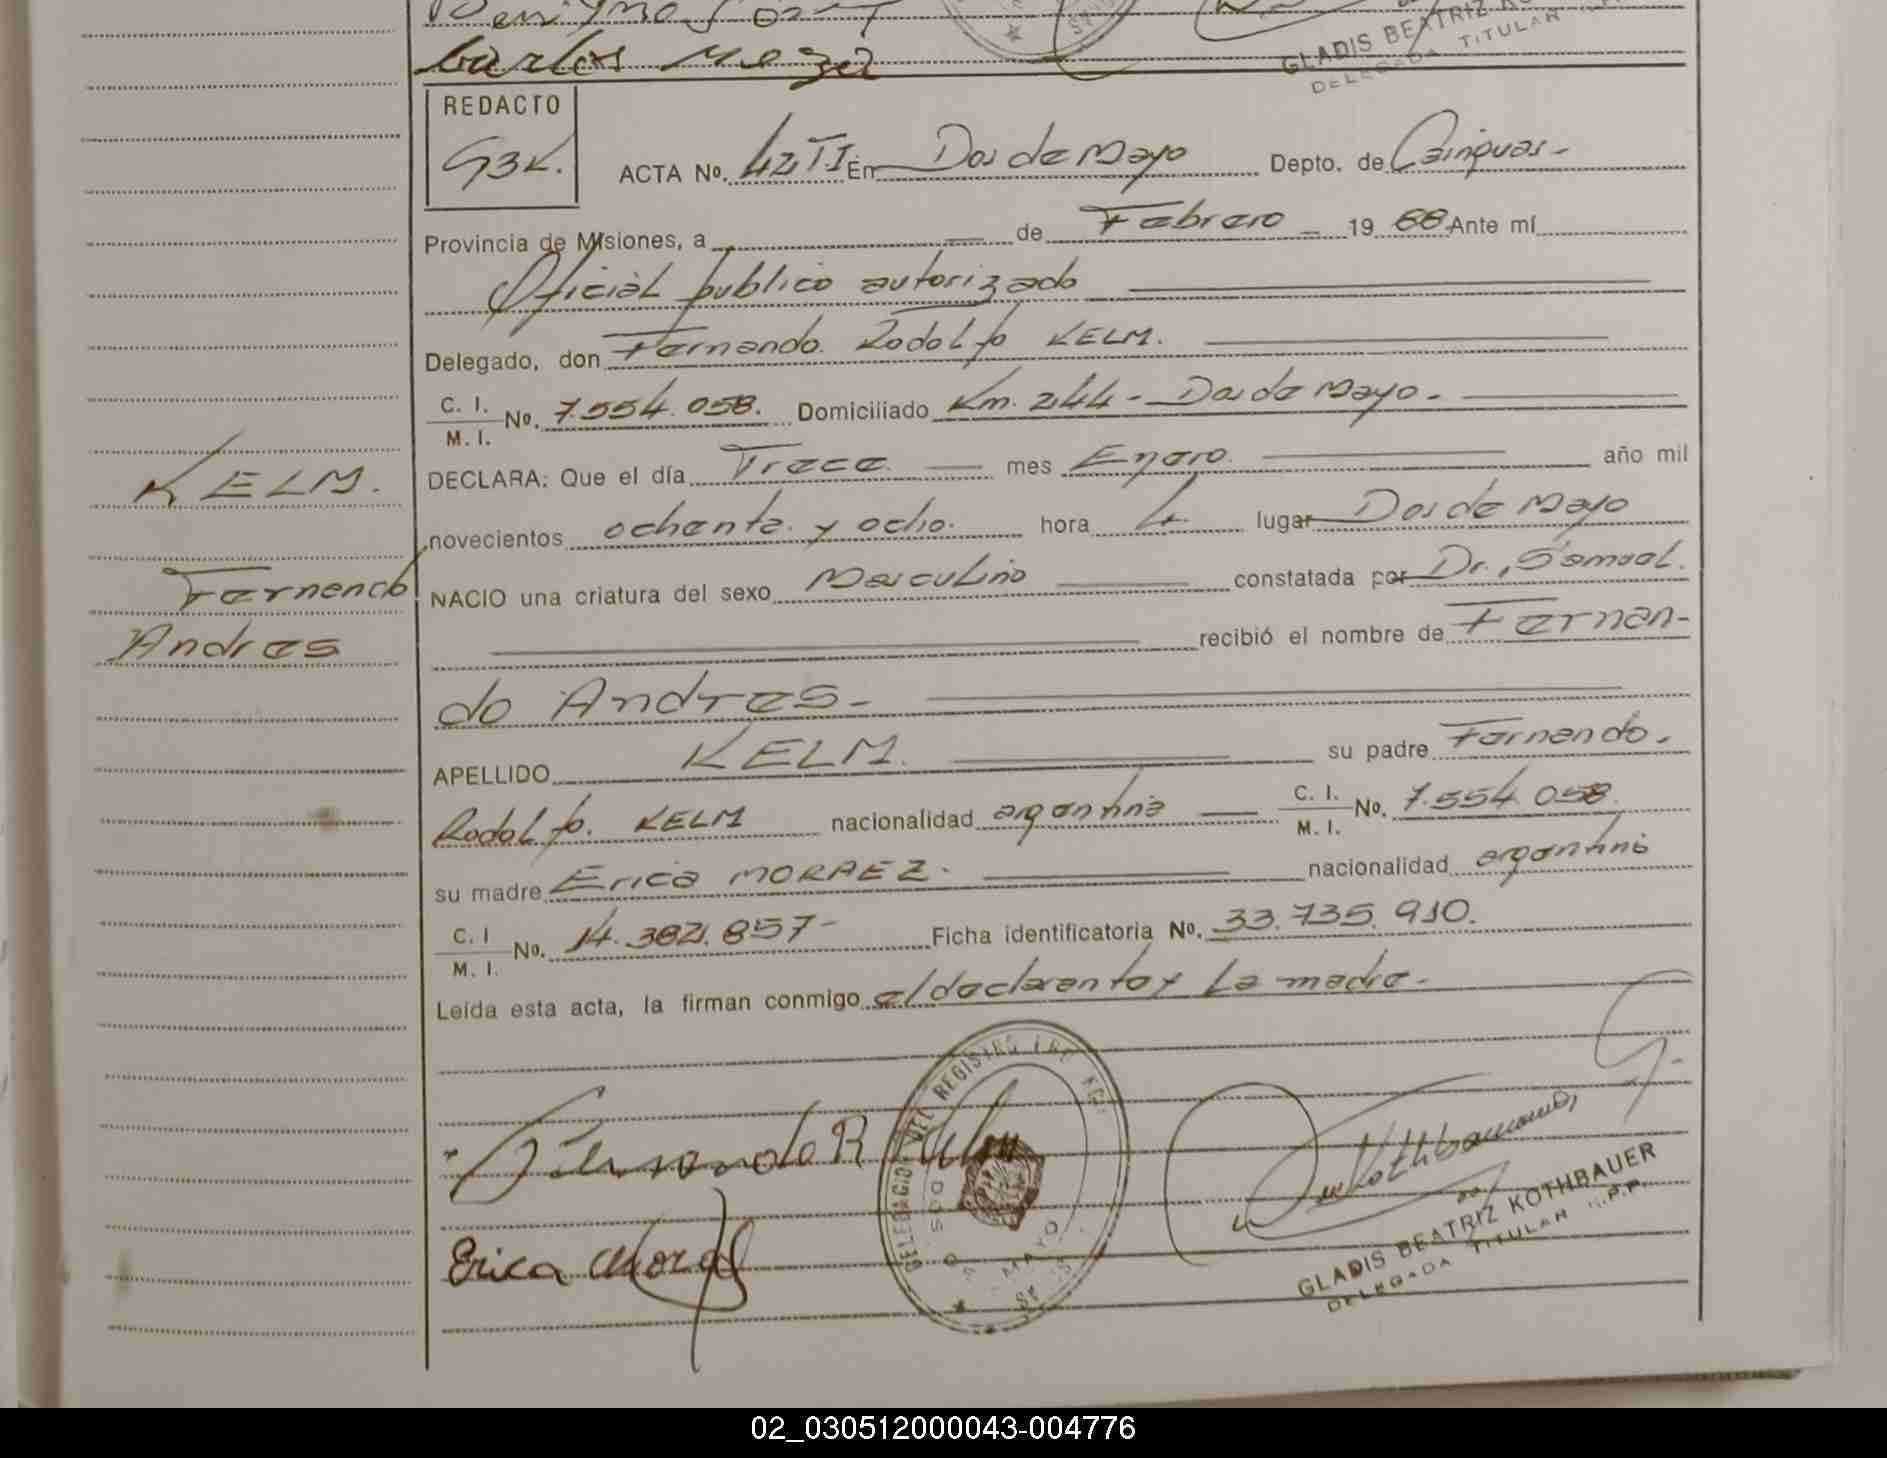 Carlos Meza
GLADIS BEATRIZ KO
DELEGADA TITULAR
REDACTO
G3K.
ACTA No. 42 TI En Dos de Mayo Depto. de Cainguas.-
Provincia de Misiones, a — de Febrero 19 88 Ante mí
Oficial publico autorizado
Delegado, don Fernando Rodolfo KELM.
C. I.
M. I. No. 7.554.058. Domiciliado Km. 244 - Dos de Mayo.-
DECLARA: Que el día Trece — mes Enero. año mil
novecientos ochenta y ocho. hora 4. lugar Dos de Mayo
NACIO una criatura del sexo Masculino constatada por Dr. Samuel.
recibió el nombre de Fernan-
do Andres.-
APELLIDO KELM. su padre Fernando.
Rodolfo. KELM nacionalidad argentina — C. I.
M. I. No. 7.554.058.
su madre Erica MORAEZ. nacionalidad argentina
C. I
M. I. No. 14.382.857- Ficha identificatoria No. 33.735.910.
Leída esta acta, la firman conmigo el declarante y la madre.-
KELM.
Fernando
Andres
Fernando R Kelm
Erica Moraes
DELEGACION DEL REGISTRO
DOS DE MAYO
Kothbauer
GLADIS BEATRIZ KOTHBAUER
DELEGADA TITULAR
02_030512000043-004776